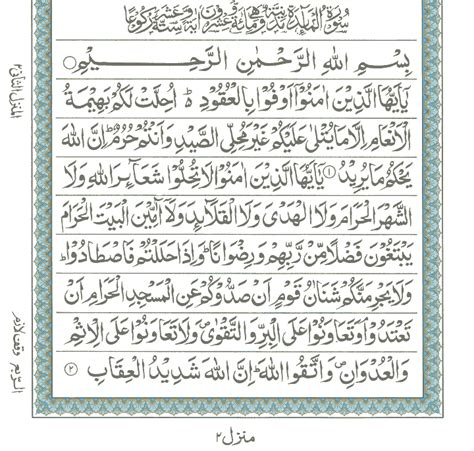 سُورَةُ الْمَآئِدَةِ مَدَنِيَّةٌ وَّهِيَ مِائَةٌ وَّعِشْرُونَ اٰيَةً وَّسِتَّةَ عَشَرَ رُكُوْعًا
بِسْمِ اللهِ الرَّحْمٰنِ الرَّحِيْمِ
يٰٓاَيُّهَا الَّذِيْنَ اٰمَنُوْٓا اَوْفُوْا بِالْعُقُوْدِ ؕ اُحِلَّتْ لَكُمْ بَهِيْمَةُ
الْاَنْعَامِ اِلَّا مَا يُتْلٰى عَلَيْكُمْ غَيْرَ مُحِلِّي الصَّيْدِ وَاَنْتُمْ حُرُمٌ ؕ اِنَّ اللهَ
يَحْكُمُ مَا يُرِيْدُ ۱ يٰٓاَيُّهَا الَّذِيْنَ اٰمَنُوْا لَا تُحِلُّوْا شَعَآئِرَ اللهِ وَلَا
الشَّهْرَ الْحَرَامَ وَلَا الْهَدْيَ وَلَا الْقَلَآئِدَ وَلَآ آٰمِّيْنَ الْبَيْتَ الْحَرَامَ
يَبْتَغُوْنَ فَضْلًا مِّنْ رَّبِّهِمْ وَرِضْوَانًا ؕ وَاِذَا حَلَلْتُمْ فَاصْطَادُوْا ؕ
وَلَا يَجْرِمَنَّكُمْ شَنَاٰنُ قَوْمٍ اَنْ صَدُّوْكُمْ عَنِ الْمَسْجِدِ الْحَرَامِ اَنْ
تَعْتَدُوْا ۘ وَتَعَاوَنُوْا عَلَى الْبِرِّ وَالتَّقْوٰى ۪ وَلَا تَعَاوَنُوْا عَلَى الْاِثْمِ
وَالْعُدْوَانِ ۪ وَاتَّقُوا اللهَ ؕ اِنَّ اللهَ شَدِيْدُ الْعِقَابِ ۲
المنزل الثانی ۲
الربع
وقف لازم
منزل ۲